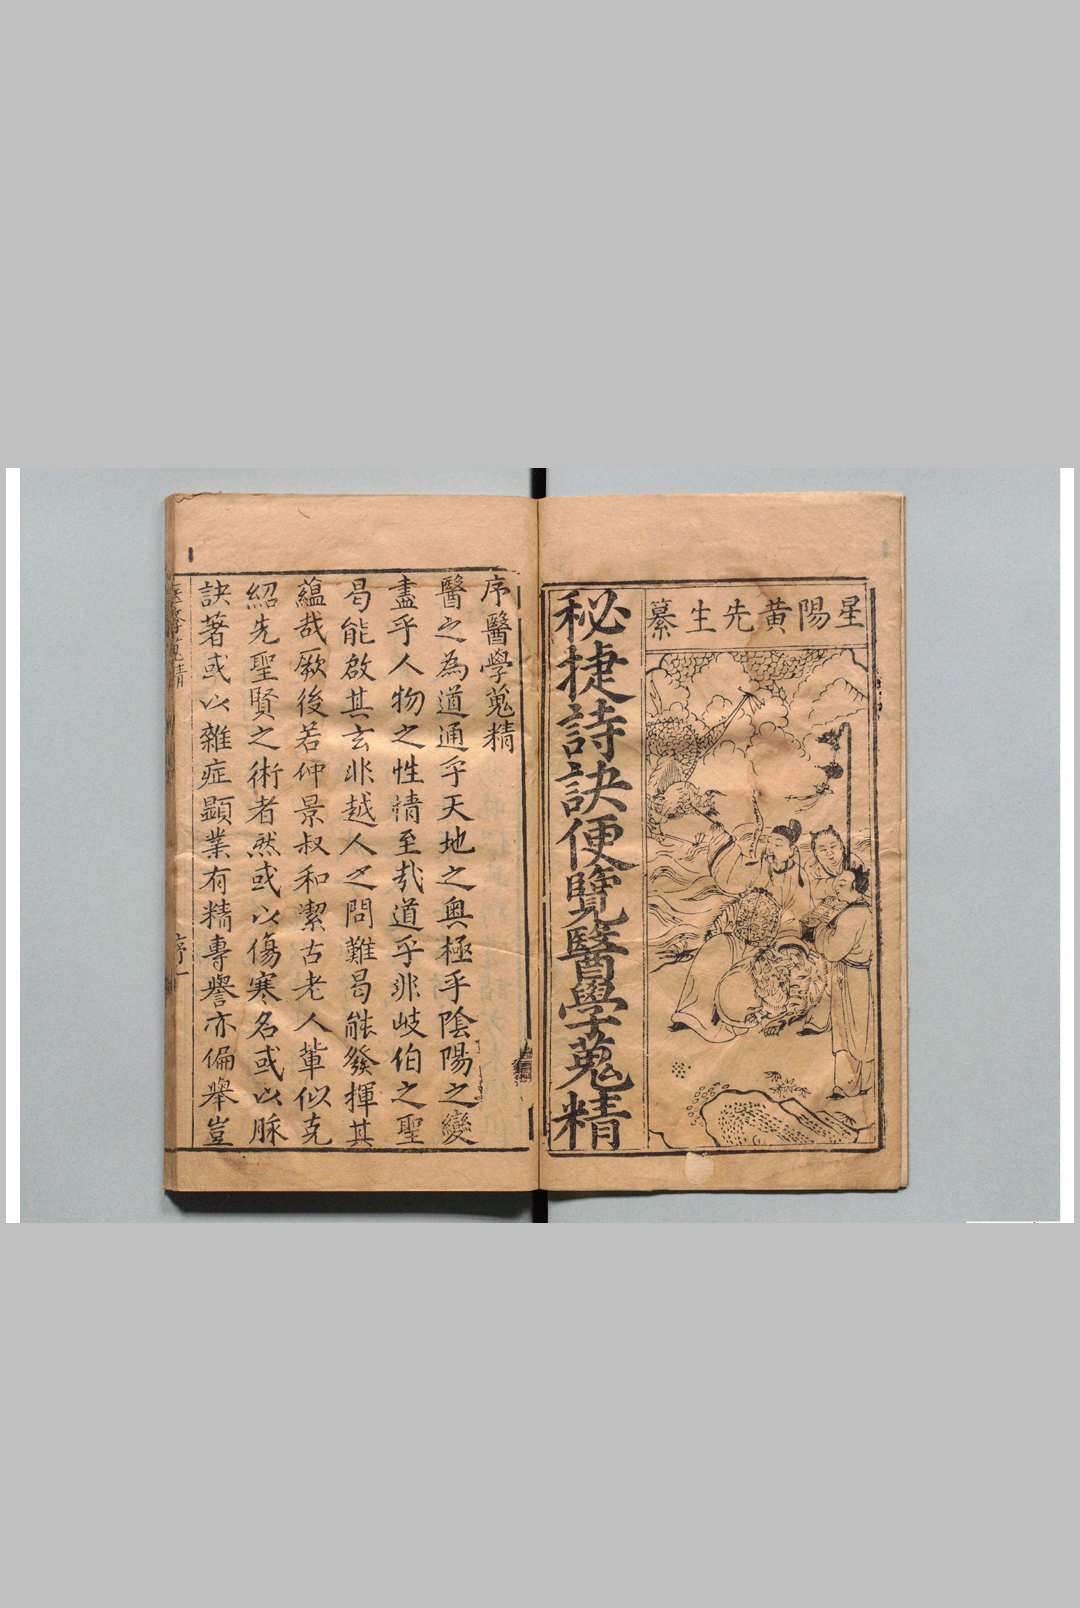 星陽黃先生纂
秘捷詩訣便覽醫學蒐精
序醫學蒐精
醫之為道通乎天地之奥極乎陰陽之變
盡乎人物之性情至哉道乎非岐伯之聖
曷能啟其玄非越人之問難曷能發揮其
蘊哉厥後若仲景叔和潔古老人軰似克
紹先聖賢之術者然或以傷寒名或以脉
訣著或以雜症顕業有精專譽亦偏舉豈
醫學蒐精
序一